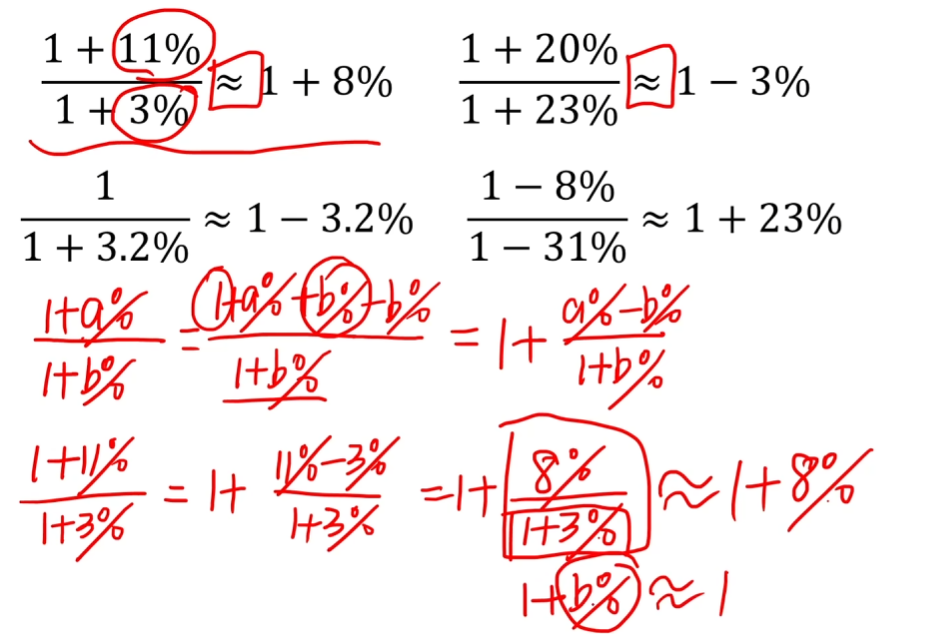 (1 + 11%)/(1 + 3%) ≈ 1 + 8%
(1 + 20%)/(1 + 23%) ≈ 1 − 3%
1/(1 + 3.2%) ≈ 1 − 3.2%
(1 − 8%)/(1 − 31%) ≈ 1 + 23%
(1+a%)/(1+b%) = (1+a%+b%-b%)/(1+b%) = 1+ (a%-b%)/(1+b%)
(1+11%)/(1+3%) = 1+ (11%-3%)/(1+3%) =1+ 8%/(1+3%) ≈ 1+8%
1+b% ≈ 1